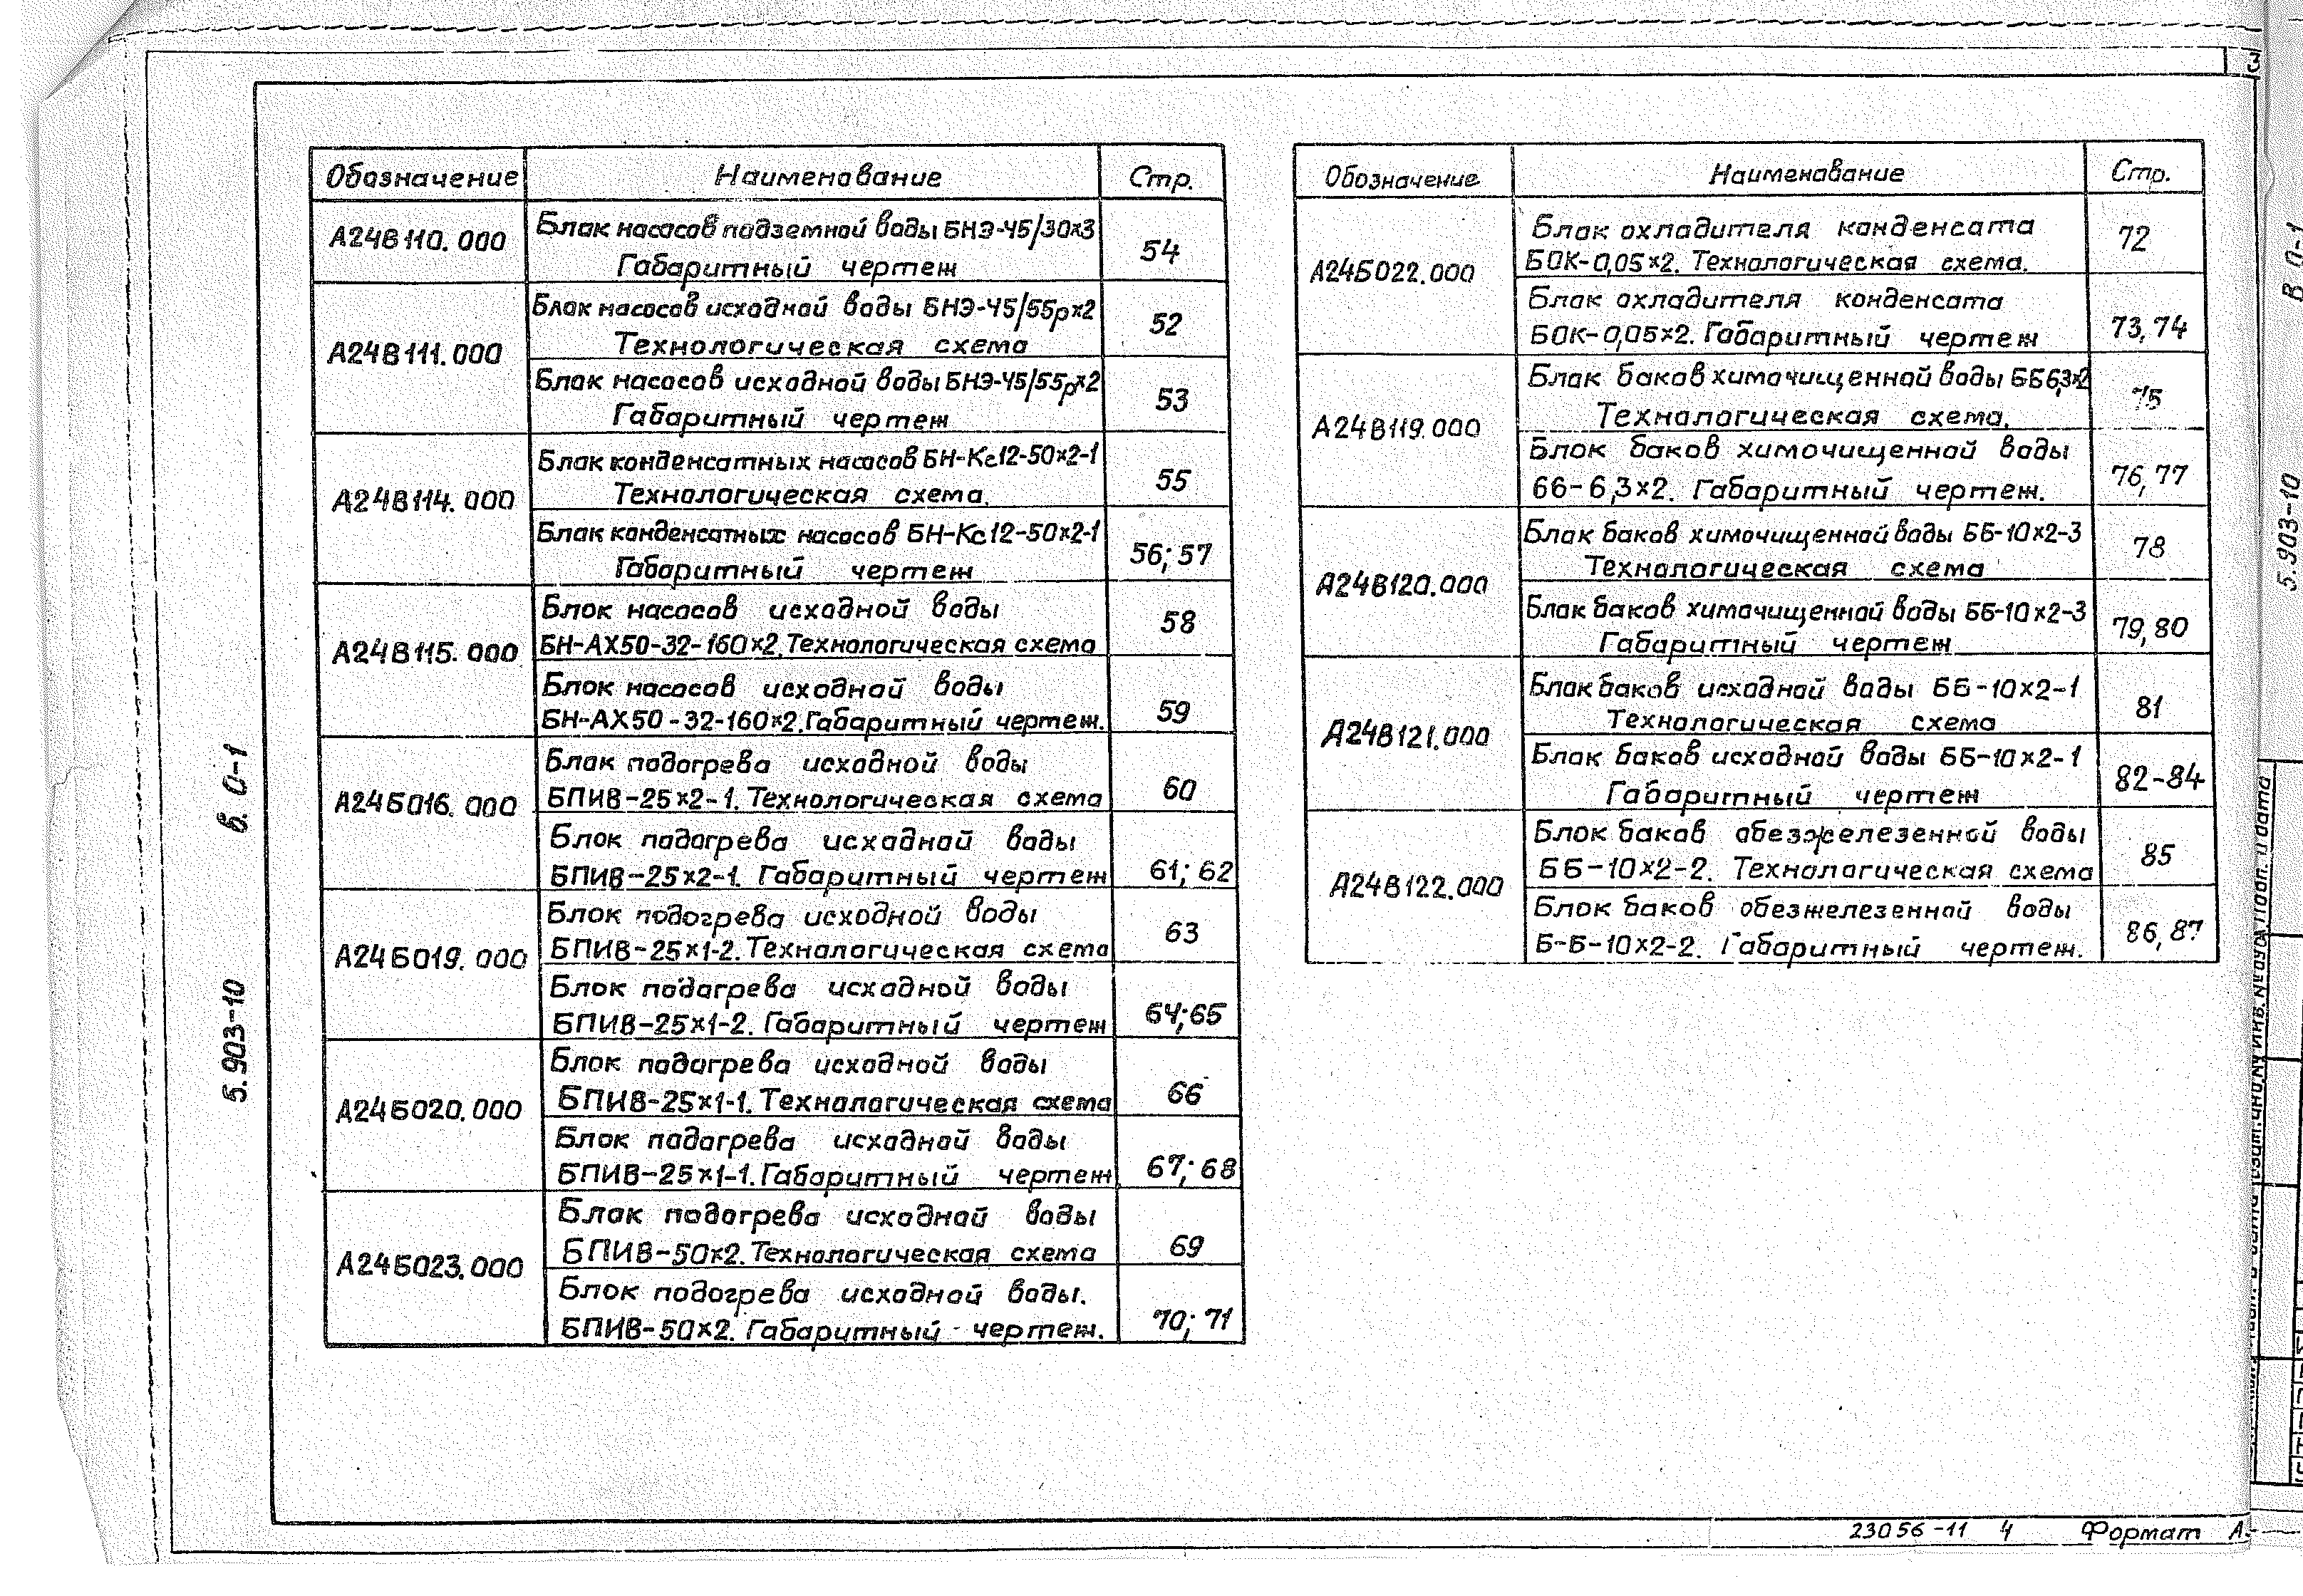 3
Обозначение Наименование Стр.
А24В110.000
Блок насосов подземной воды БНЭ-45/30х3
Габаритный чертеж
54
А24В111.000
Блок насосов исходной воды БНЭ-45/55рх2
Технологическая схема
52
Блок насосов исходной воды БНЭ-45/55рх2
Габаритный чертеж
53
А24В114.000
Блок конденсатных насосов БН-Кс12-50х2-1
Технологическая схема.
55
Блок конденсатных насосов БН-Кс12-50х2-1
Габаритный чертеж
56; 57
А24В115.000
Блок насосов исходной воды
БН-АХ50-32-160х2.Технологическая схема
58
Блок насосов исходной воды
БН-АХ50-32-160х2.Габаритный чертеж.
59
А24Б016.000
Блок подогрева исходной воды
БПИВ-25х2-1. Технологическая схема
60
Блок подогрева исходной воды
БПИВ-25х2-1. Габаритный чертеж
61; 62
А24Б019.000
Блок подогрева исходной воды
БПИВ-25х1-2. Технологическая схема
63
Блок подогрева исходной воды
БПИВ-25х1-2. Габаритный чертеж
64;65
А24Б020.000
Блок подогрева исходной воды
БПИВ-25х1-1. Технологическая схема
66
Блок подогрева исходной воды
БПИВ-25х1-1. Габаритный чертеж
67; 68
А24Б023.000
Блок подогрева исходной воды
БПИВ-50х2. Технологическая схема
69
Блок подогрева исходной воды.
БПИВ-50х2. Габаритный чертеж.
70; 71
Обозначение Наименование Стр.
А24Б022.000
Блок охладителя конденсата
БОК-0,05х2. Технологическая схема.
72
Блок охладителя конденсата
БОК-0,05х2. Габаритный чертеж
73,74
А24В119.000
Блок баков химочищенной воды ББ6,3х2
Технологическая схема.
75
Блок баков химочищенной воды
66-6,3х2. Габаритный чертеж.
76,77
А24В120.000
Блок баков химочищенной воды ББ-10х2-3
Технологическая схема
78
Блок баков химочищенной воды ББ-10х2-3
Габаритный чертеж
79,80
А24В121.000
Блок баков исходной воды ББ-10х2-1
Технологическая схема
81
Блок баков исходной воды ББ-10х2-1
Габаритный чертеж
82-84
А24В122.000
Блок баков обезжелезенной воды
ББ-10х2-2. Технологическая схема
85
Блок баков обезжелезенной воды
Б-Б-10х2-2. Габаритный чертеж.
86,87
5.903-10 в. 0-1
5.903-10 В 0-1
23056-11 4 Формат А